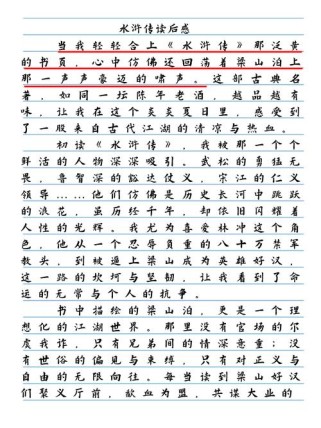 水浒传读后感
当我轻轻合上《水浒传》那泛黄
的书页，心中仿佛还回荡着梁山泊上
那一声声豪迈的啸声。这部古典名
著，如同一坛陈年老酒，越品越有
味，让我在这个炎炎夏日里，感受到
了一股来自古代江湖的清凉与热血。
初读《水浒传》，我被那一个个
鲜活的人物深深吸引。武松的勇猛无
畏，鲁智深的豁达仗义，宋江的仁义
领导……他们仿佛是历史长河中跳跃
的浪花，虽历经千年，却依旧闪耀着
人性的光辉。我尤为喜爱林冲这个角
色，他从一个忍辱负重的八十万禁军
教头，到被逼上梁山成为英雄好汉，
这一路的坎坷与坚韧，让我看到了命
运的无常与个人的抗争。
书中描绘的梁山泊，更是一个理
想化的江湖世界。那里没有官场的尔
虞我诈，只有兄弟间的情深意重；没
有世俗的偏见与束缚，只有对正义与
自由的无限向往。每当读到梁山好汉
们聚义厅前，献血为盟，共谋大业的